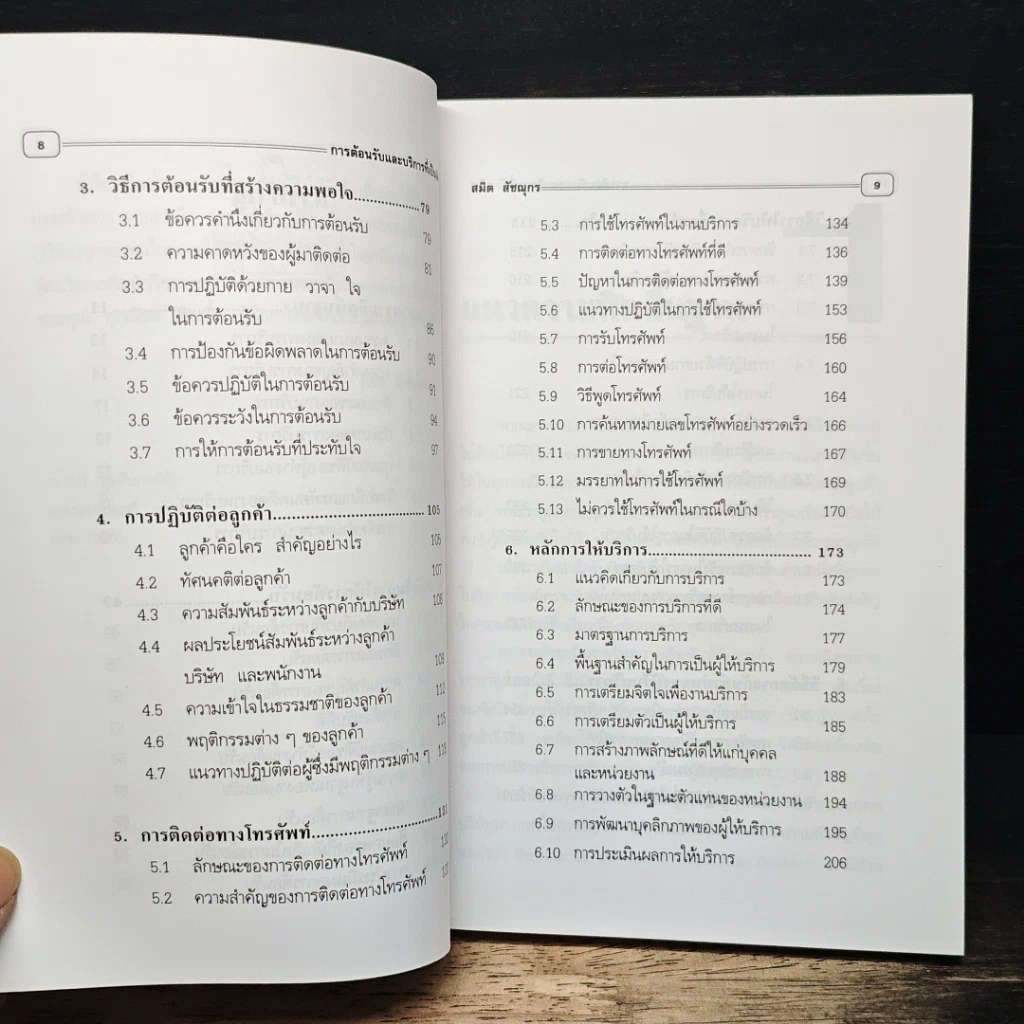 8
การต้อนรับและบริการที่เป็น
3. วิธีการต้อนรับที่สร้างความพอใจ..................79
3.1 ข้อควรคำนึงเกี่ยวกับการต้อนรับ 79
3.2 ความคาดหวังของผู้มาติดต่อ 81
3.3 การปฏิบัติด้วยกาย วาจา ใจ
ในการต้อนรับ 86
3.4 การป้องกันข้อผิดพลาดในการต้อนรับ 90
3.5 ข้อควรปฏิบัติในการต้อนรับ 91
3.6 ข้อควรระวังในการต้อนรับ 94
3.7 การให้การต้อนรับที่ประทับใจ 97
4. การปฏิบัติต่อลูกค้า.....................................105
4.1 ลูกค้าคือใคร สำคัญอย่างไร 105
4.2 ทัศนคติต่อลูกค้า 107
4.3 ความสัมพันธ์ระหว่างลูกค้ากับบริษัท 108
4.4 ผลประโยชน์สัมพันธ์ระหว่างลูกค้า
บริษัท และพนักงาน 109
4.5 ความเข้าใจในธรรมชาติของลูกค้า 112
4.6 พฤติกรรมต่าง ๆ ของลูกค้า 115
4.7 แนวทางปฏิบัติต่อผู้ซึ่งมีพฤติกรรมต่าง ๆ
5. การติดต่อทางโทรศัพท์..............................
5.1 ลักษณะของการติดต่อทางโทรศัพท์
5.2 ความสำคัญของการติดต่อทางโทรศัพท์
สมิต สัชฌุกร
9
5.3 การใช้โทรศัพท์ในงานบริการ 134
5.4 การติดต่อทางโทรศัพท์ที่ดี 136
5.5 ปัญหาในการติดต่อทางโทรศัพท์ 139
5.6 แนวทางปฏิบัติในการใช้โทรศัพท์ 153
5.7 การรับโทรศัพท์ 156
5.8 การต่อโทรศัพท์ 160
5.9 วิธีพูดโทรศัพท์ 164
5.10 การค้นหาหมายเลขโทรศัพท์อย่างรวดเร็ว 166
5.11 การขายทางโทรศัพท์ 167
5.12 มรรยาทในการใช้โทรศัพท์ 169
5.13 ไม่ควรใช้โทรศัพท์ในกรณีใดบ้าง 170
6. หลักการให้บริการ....................................... 173
6.1 แนวคิดเกี่ยวกับการบริการ 173
6.2 ลักษณะของการบริการที่ดี 174
6.3 มาตรฐานการบริการ 177
6.4 พื้นฐานสำคัญในการเป็นผู้ให้บริการ 179
6.5 การเตรียมจิตใจเพื่องานบริการ 183
6.6 การเตรียมตัวเป็นผู้ให้บริการ 185
6.7 การสร้างภาพลักษณ์ที่ดีให้แก่บุคคล
และหน่วยงาน 188
6.8 การวางตัวในฐานะตัวแทนของหน่วยงาน 194
6.9 การพัฒนาบุคลิกภาพของผู้ให้บริการ 195
6.10 การประเมินผลการให้บริการ 206